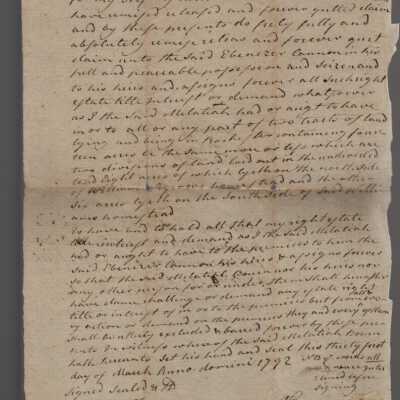 have remised released and forever quitted claim
and by these presents do fully freely and
absolutely remise release and forever quit
claim unto the Said Ebenezer Connon in his
full and peaceable possession and Seizen and
to his heirs and assigns forever all Such right
estate title interest or demand whatsoever
as I the Said Melatiah had or aught to have
in or to all or any part of two tracts of land
lying and being in containing four
teen acres be the Same more or less which are
two divisions of land laid out in the undivided
land Eight acres of which lyeth on the north Side
of William homestead and the other
Six acres lyeth on the South Side of Said
homestead
To have and to hold all that my right estate
title interest and demand as I the Said Melatiah
had or aught to have to the premises to him the
Said Ebenezer Connon his heirs & assigns forever
So that the said Melatiah Connon nor his heirs nor
any other person for or under them Shall hereafter
have claim challenge or demand any estate right
title or interest of in or to the premises but from
action or demand on the premises they and every of them
Shall be utterly excluded & barred forever by these pre
sents In witness whereof the Said Melatiah
hath hereunto Set his hand and Seal this thirty first
day of March Anno domini 1792 NB words all
were inter
lined before
signing
Signed Sealed &